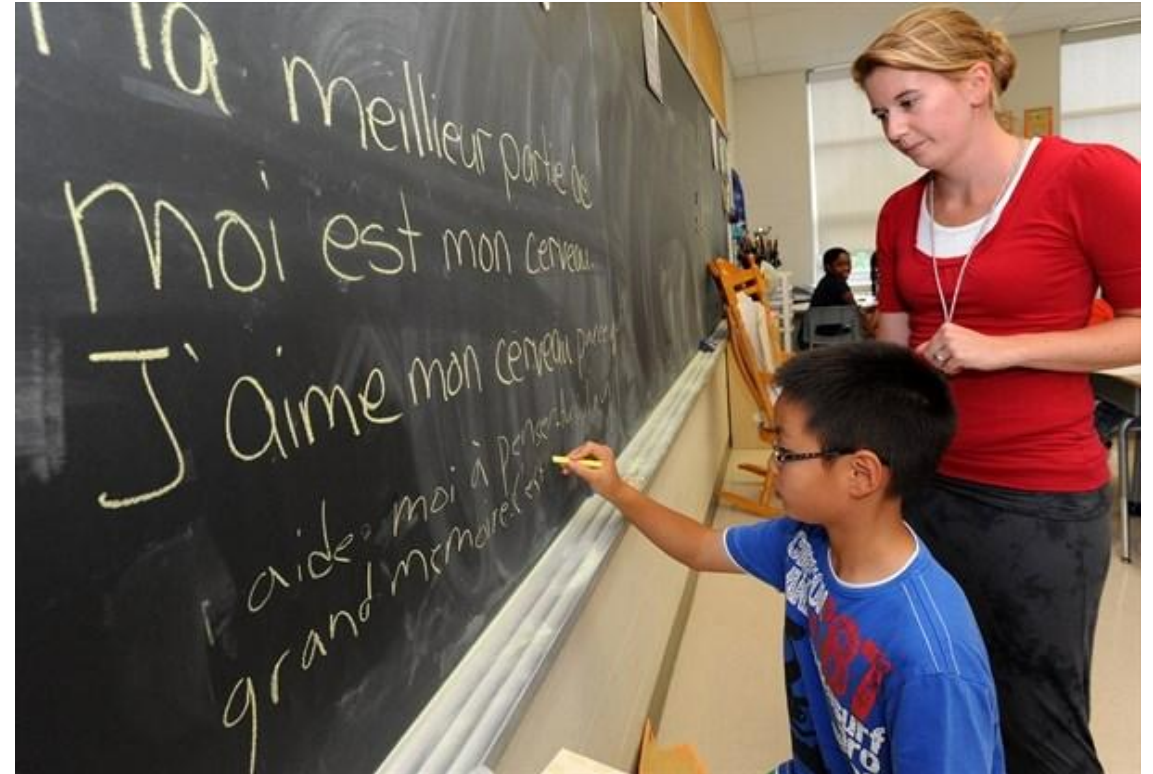 la meillieur partie de
moi est mon cerveau.
J'aime mon cerveau
aide-moi à penser
grand mémoire